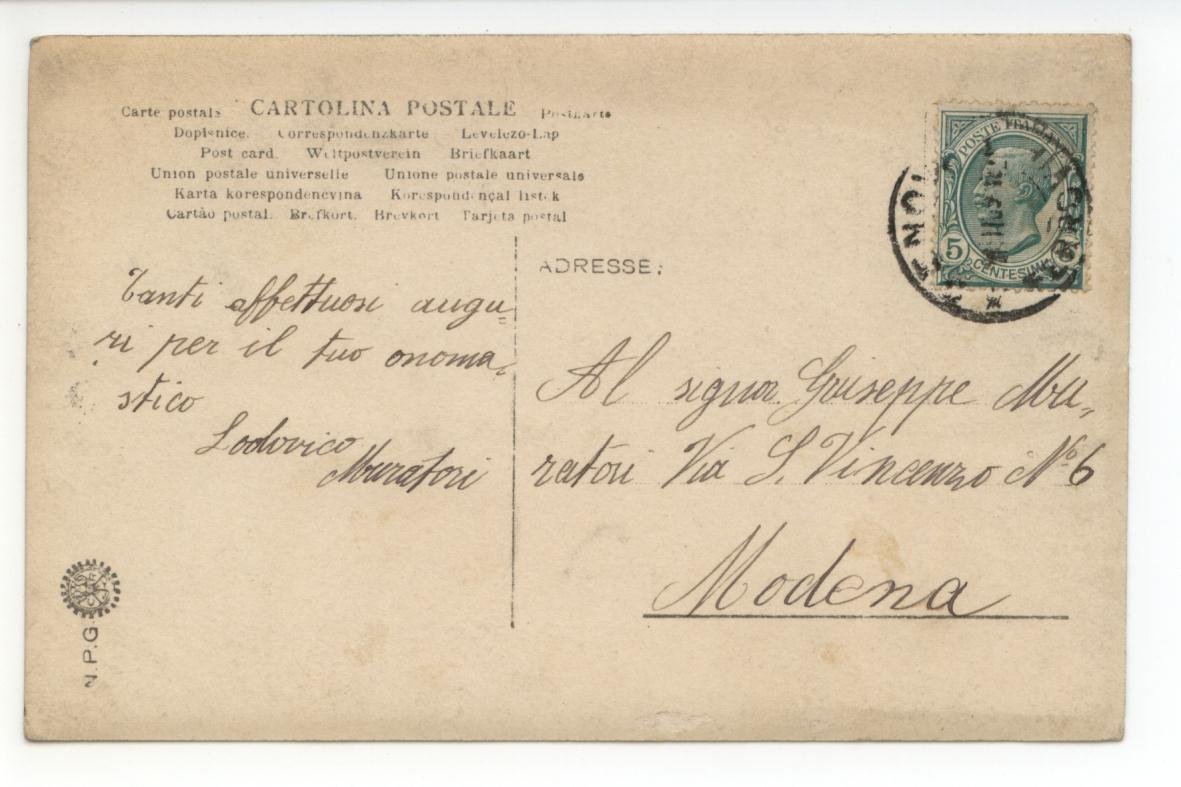 Carte postale CARTOLINA POSTALE Postkarte
Dopisnice. Correspondenzkarte Levelezo-Lap
Post card. Weltpostverein Briefkaart
Union postale universelle Unione postale universale
Karta korespondencyina Korespondençal listek
Cartão postal. Brefkort. Brevkort Tarjeta postal
Tanti affettuosi augu=
ri per il tuo onoma=
stico
Lodovico
Muratori
N.P.G.
ADRESSE:
POSTE ITALIANE
5 CENTESIMI
Al signor Giuseppe Mu=
ratori Via S. Vincenzo No 6
Modena